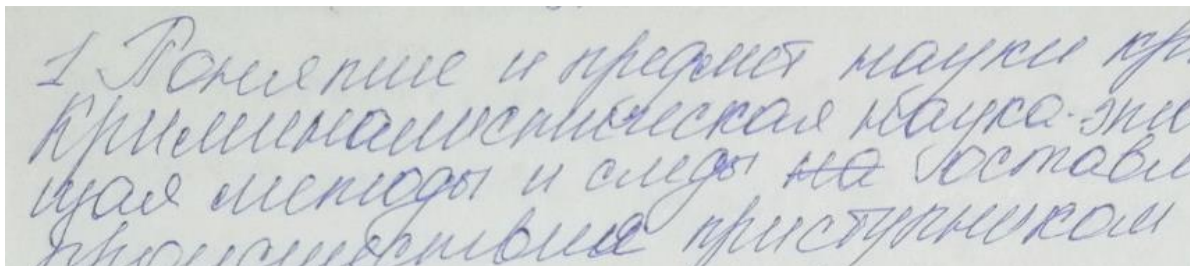 1 Понятие и предмет науки кр
Криминалистическая наука-эти
щая методы и следы на оставл
происшествия приступником